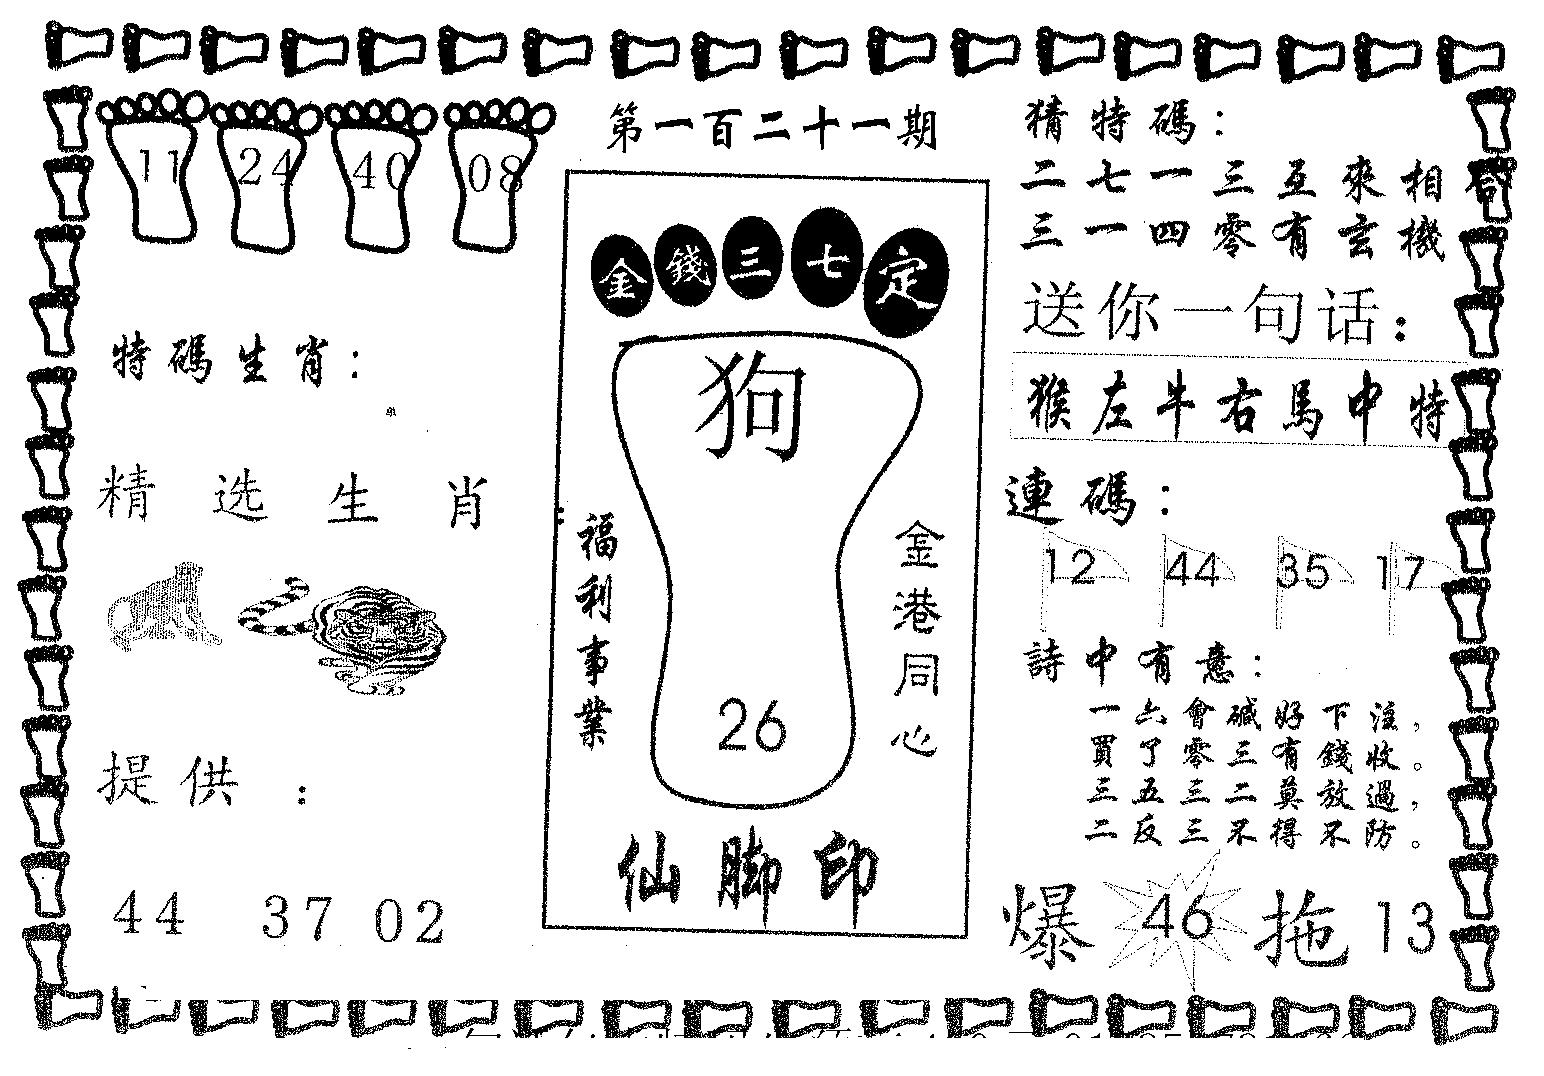 第一百二十一期
11 24 40 08
特碼生肖：
精选生肖：
提供：
44 37 02
金錢三七定
狗
福利事業
金港同心
26
仙脚印
猜特碼：
二七一三互來相
三一四零有玄機
送你一句话：
猴左牛右馬中特
連碼：
12 44 35 17
詩中有意：
一六會碱好下注，
買了零三有錢收。
三五三二莫放過，
二反三不得不防。
爆 46 拖 13